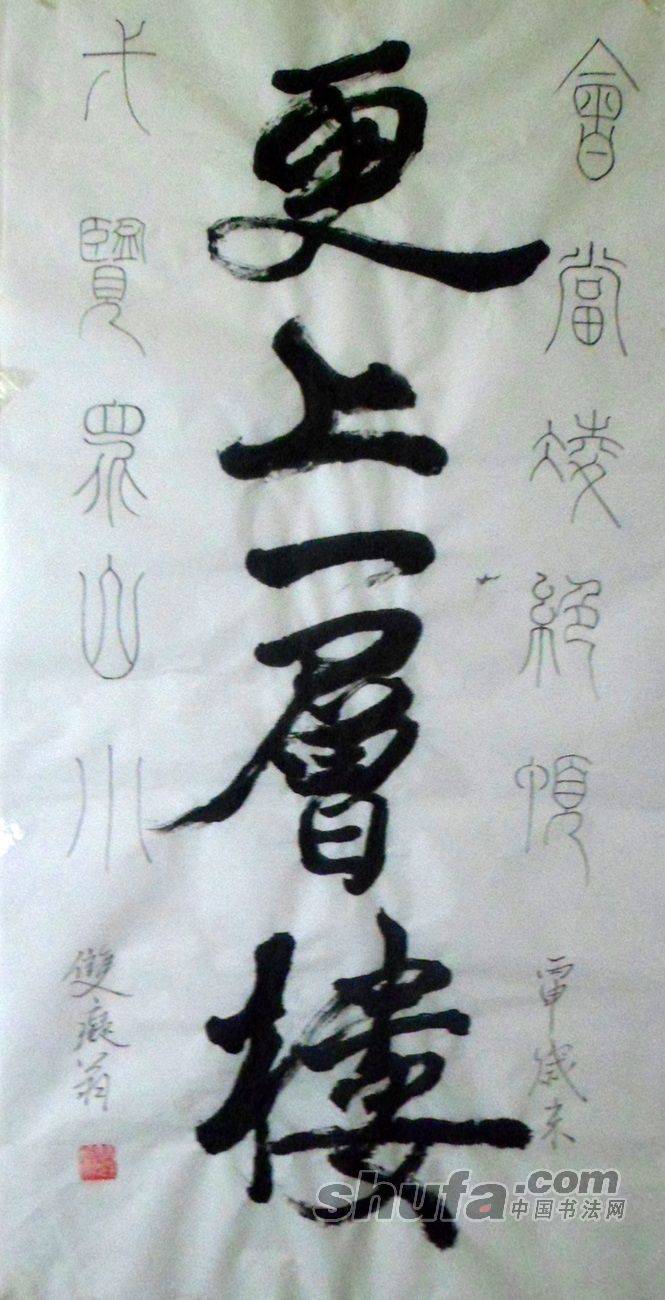 會當凌絕頂
申歲末
更上一層樓
覽眾山小
雙翁
shufa.com
中国书法网